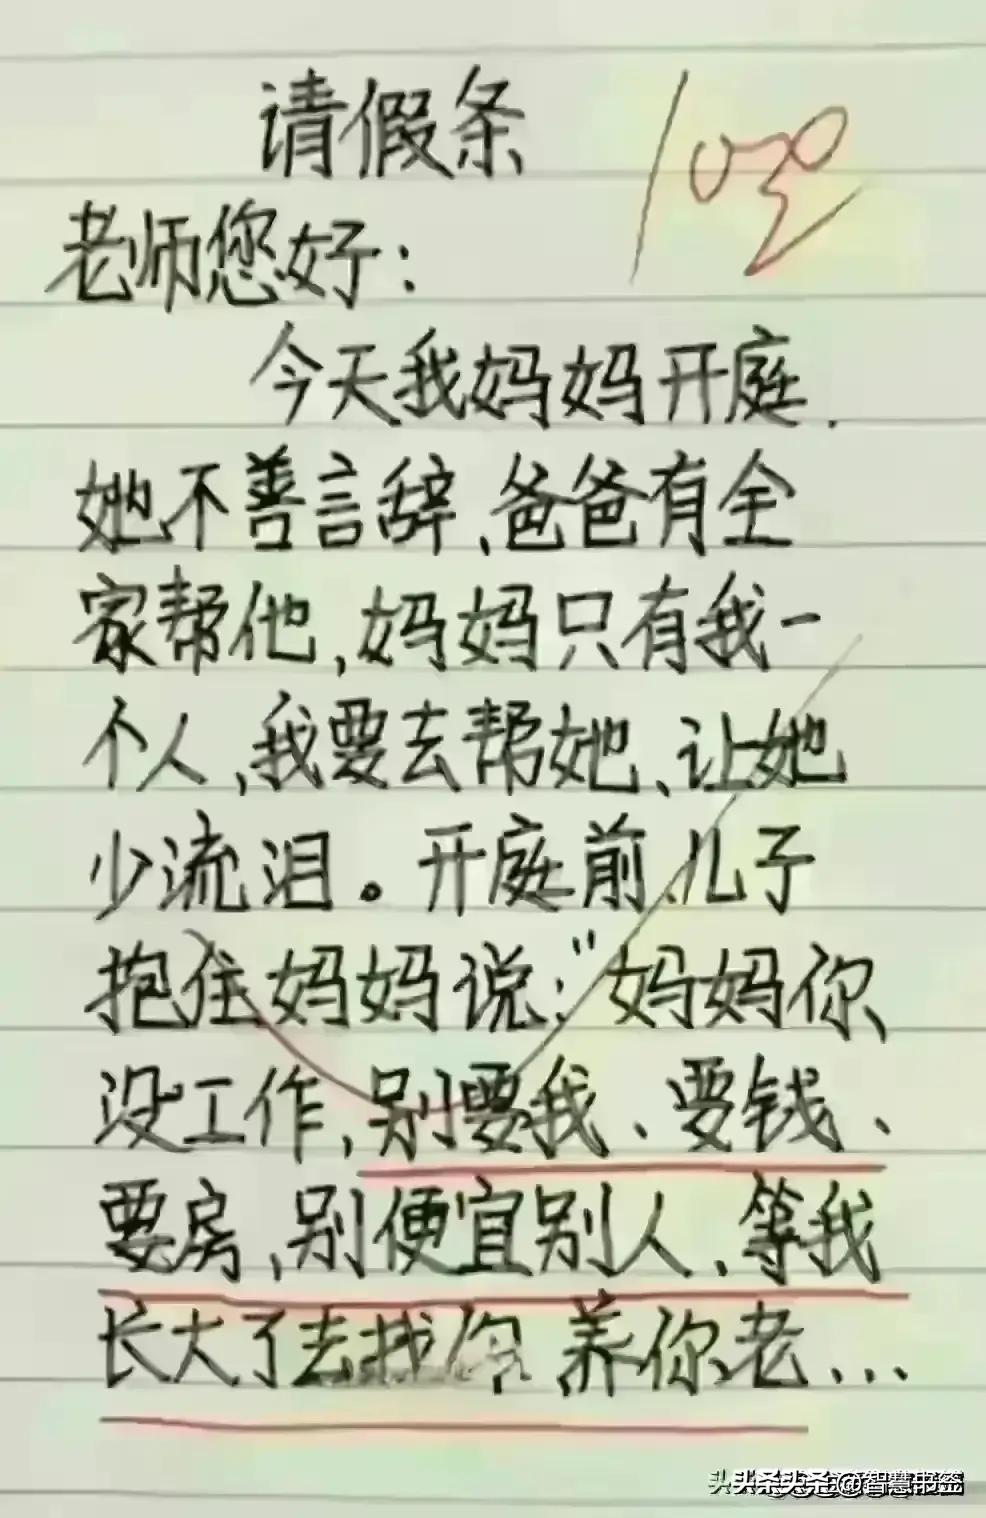 请假条
100
老师您好:
今天我妈妈开庭,
她不善言辞,爸爸有全
家帮他,妈妈只有我一
个人,我要去帮她、让她
少流泪。开庭前,儿子
抱住妈妈说:"妈妈你
没工作,别要我、要钱、
要房,别便宜别人,等我
长大了去找你,养你老...
头条 @智慧书签